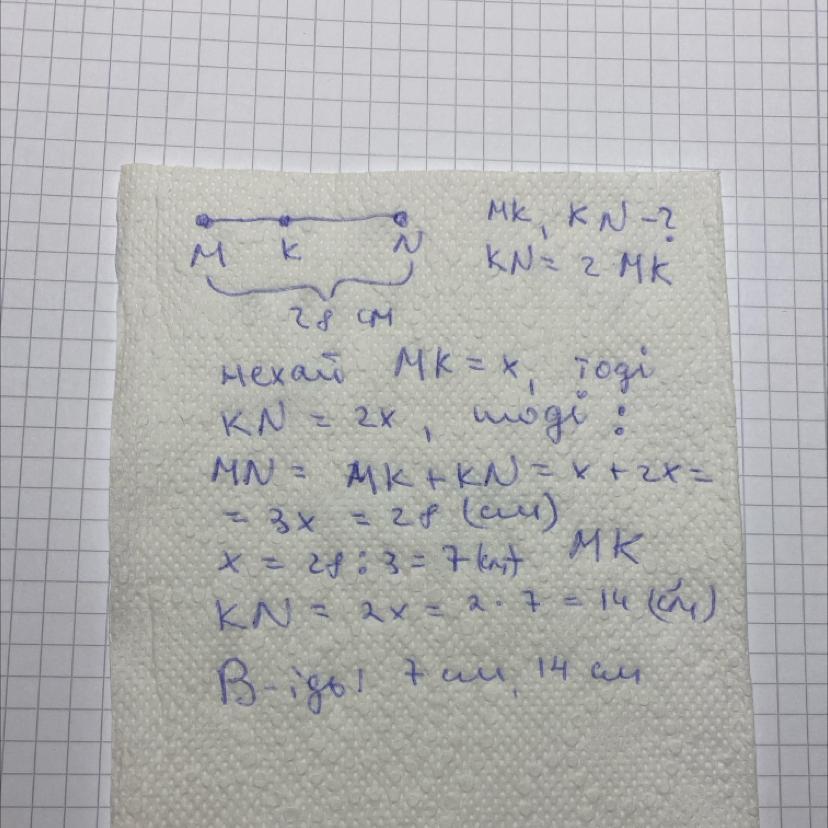 MK, KN-?
M K N
KN = 2 MK
28 см
нехай MK = x, тоді
KN = 2x, тоді :
MN = MK + KN = x + 2x =
= 3x = 28 (см)
x = 28 : 3 = 7 (см) MK
KN = 2x = 2 · 7 = 14 (см)
В-ідь: 7 см, 14 см